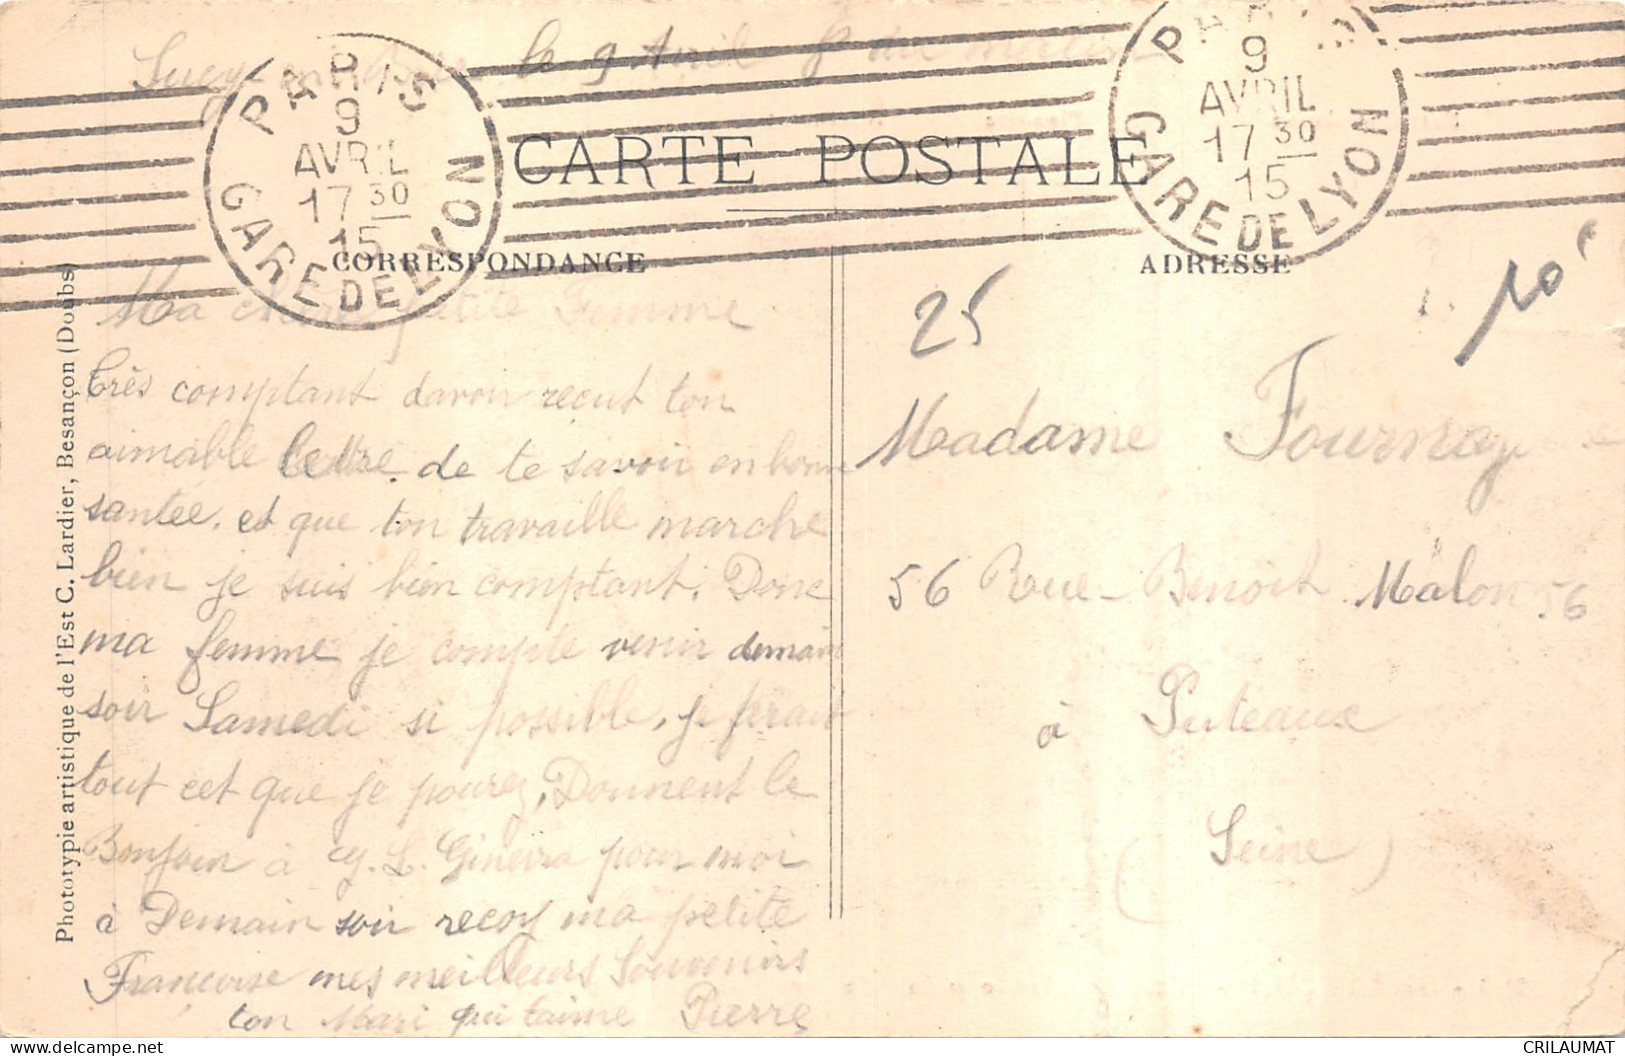 Sucy-en-Brie le 9 Avril 8 du matin
PARIS
9
AVRIL
17 30
15
GARE DE LYON
PARIS
9
AVRIL
17 30
15
GARE DE LYON
CARTE POSTALE
CORRESPONDANCE
ADRESSE
Ma chère petite Femme
très comptant davoir recut ton
aimable lettre. de te savoir en bonne
santée. et que ton travaille marche
bien je suis bien comptant. Donc
ma femme je compte venir demain
soir Samedi si possible, je ferait
tout cet que je pourez, Donnent le
Bonjour à L. Ginevra pour moi
à Demain soir recoy ma petite
Françoise mes meilleurs Souvenirs
ton Mari qui taime Pierre
25
10
Madame Fournay
56 Rue-Benoit Malon 56
à Puteaux
(Seine)
Phototypie artistique de l'Est C. Lardier, Besançon (Doubs)
www.delcampe.net
CRILAUMAT